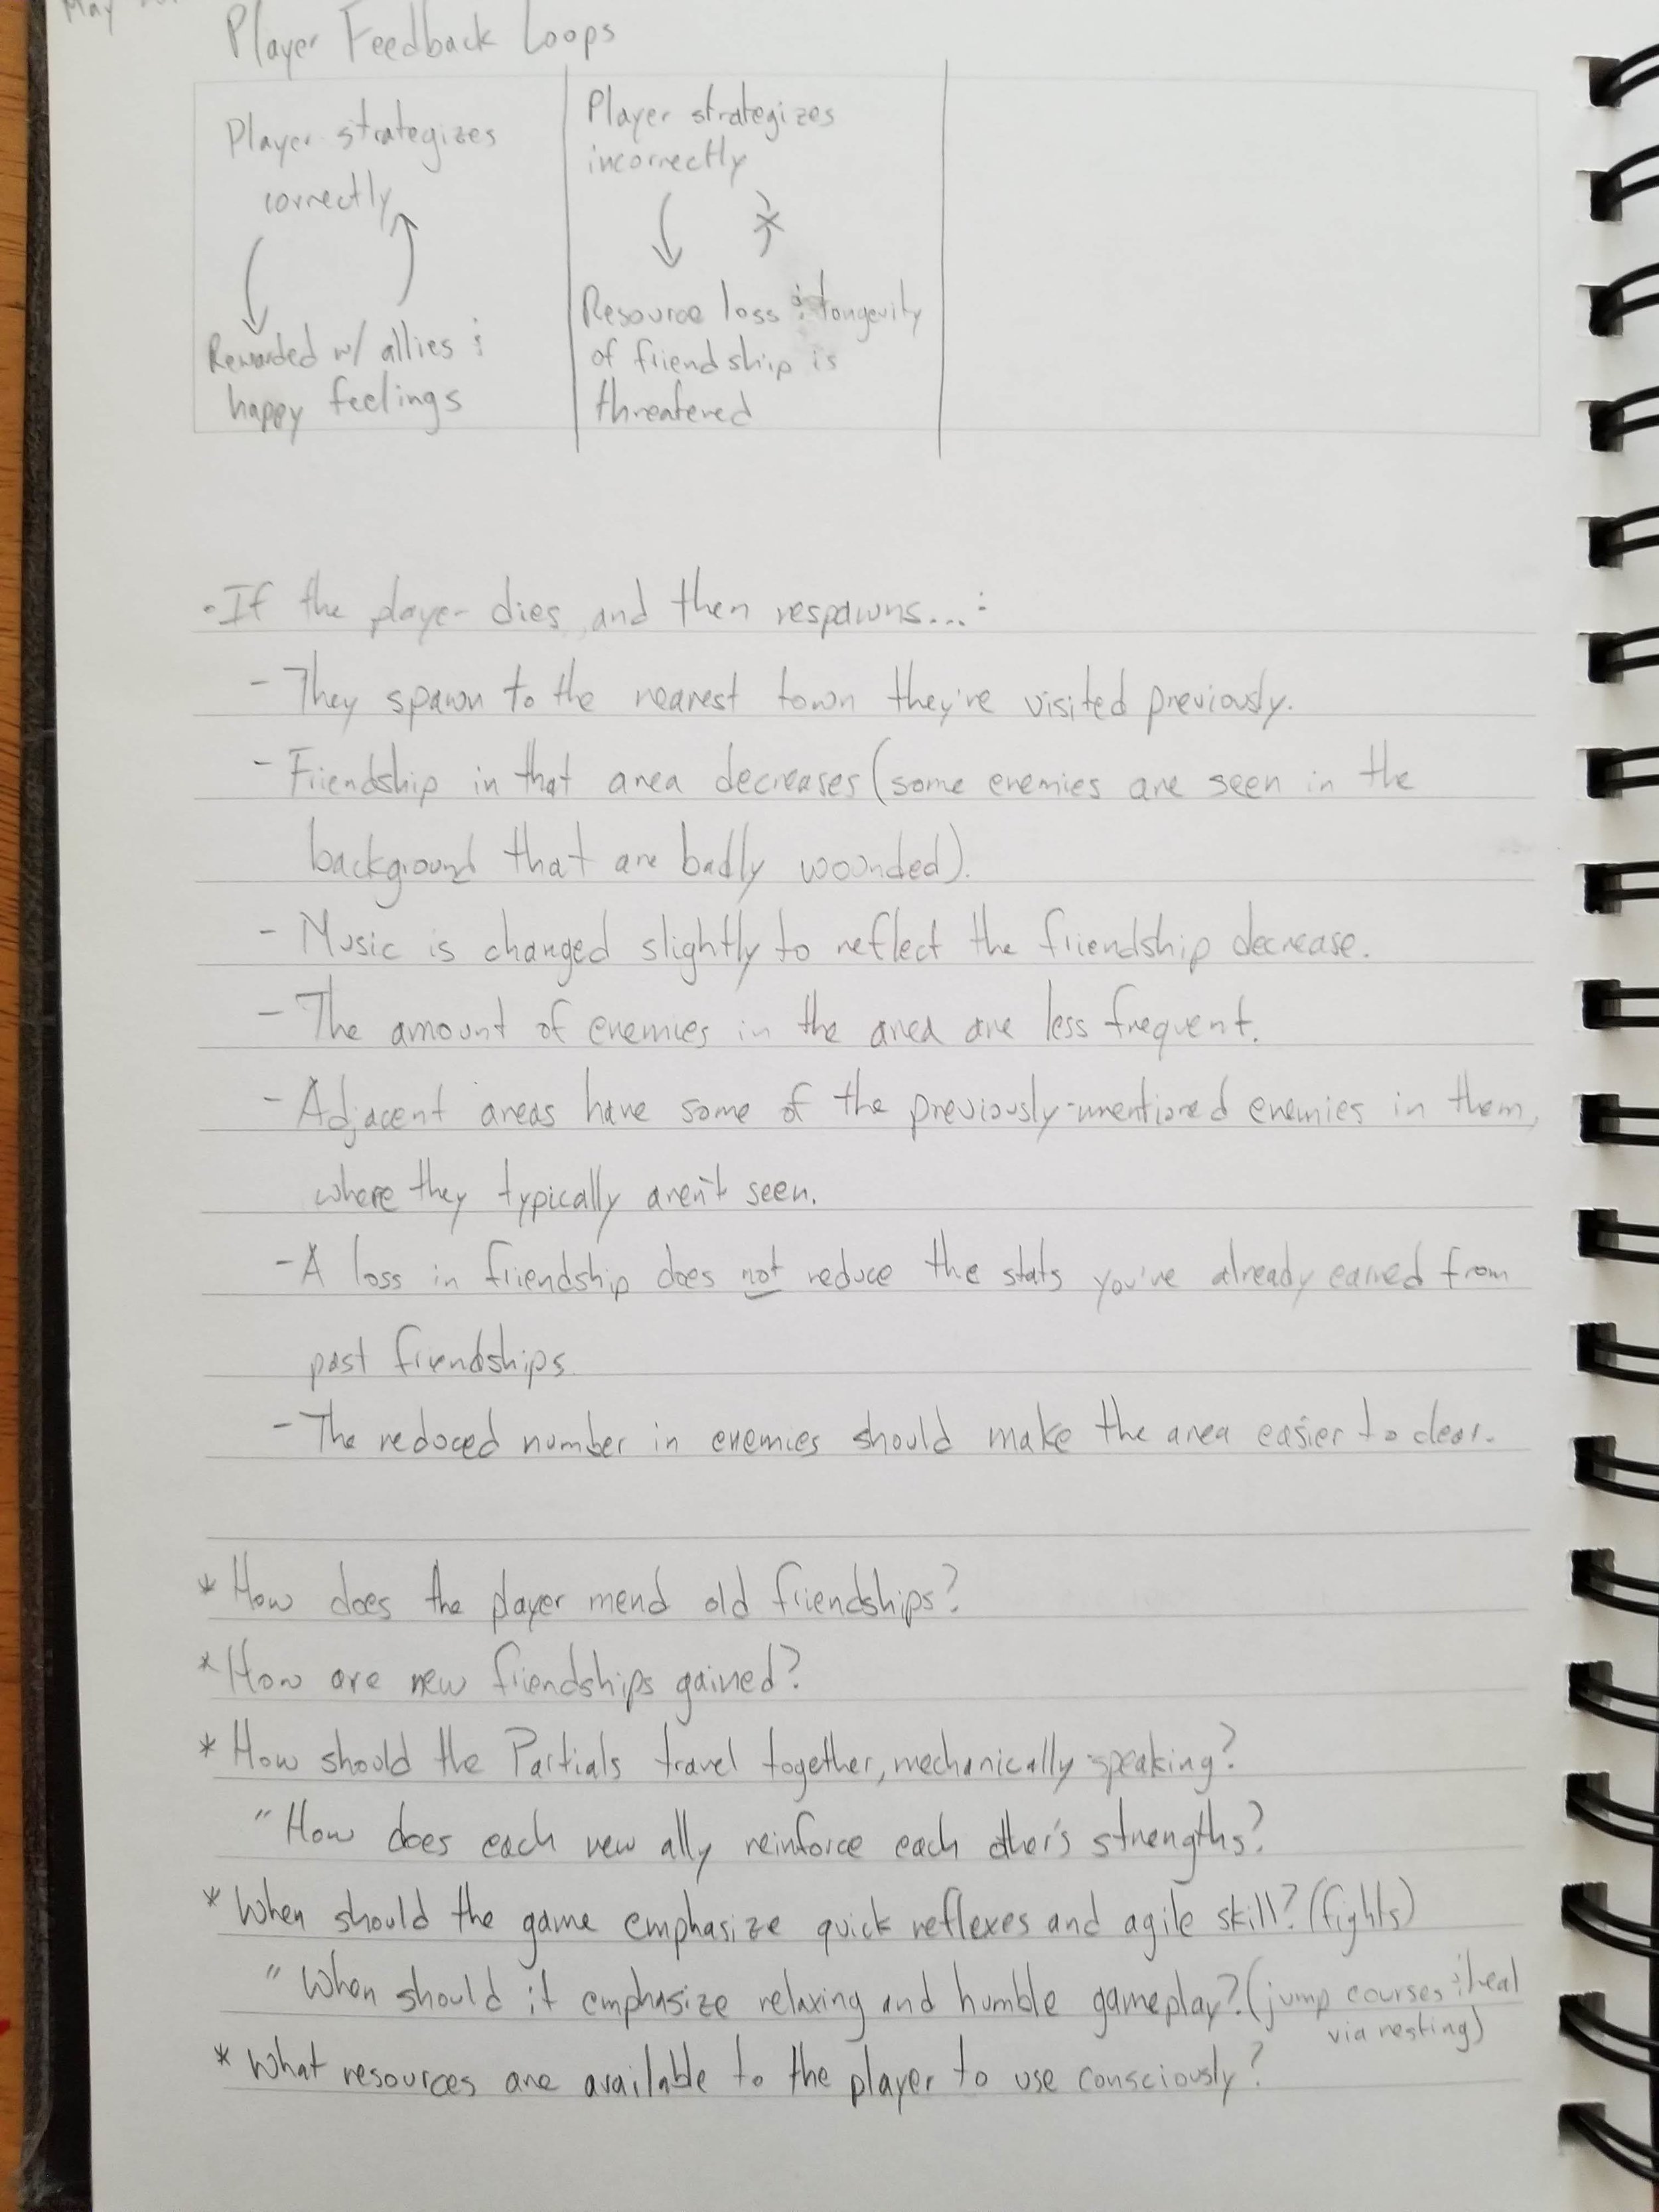 May
Player Feedback Loops
Player strategizes
correctly
Rewarded w/ allies &
happy feelings
Player strategizes
incorrectly
Resource loss & longevity
of friendship is
threatened
• If the player dies, and then respawns...:
- They spawn to the nearest town they're visited previously.
- Friendship in that area decreases (some enemies are seen in the
background that are badly wounded).
- Music is changed slightly to reflect the friendship decrease.
- The amount of enemies in the area are less frequent.
- Adjacent areas have some of the previously-mentioned enemies in them,
where they typically aren't seen.
- A loss in friendship does not reduce the stats you've already earned from
past friendships.
- The reduced number in enemies should make the area easier to clear.
* How does the player mend old friendships?
* How are new friendships gained?
* How should the Partials travel together, mechanically-speaking?
" How does each new ally reinforce each other's strengths?
* When should the game emphasize quick reflexes and agile skill? (fights)
" When should it emphasize relaxing and humble gameplay? (jump courses & heal
via resting)
* What resources are available to the player to use consciously?